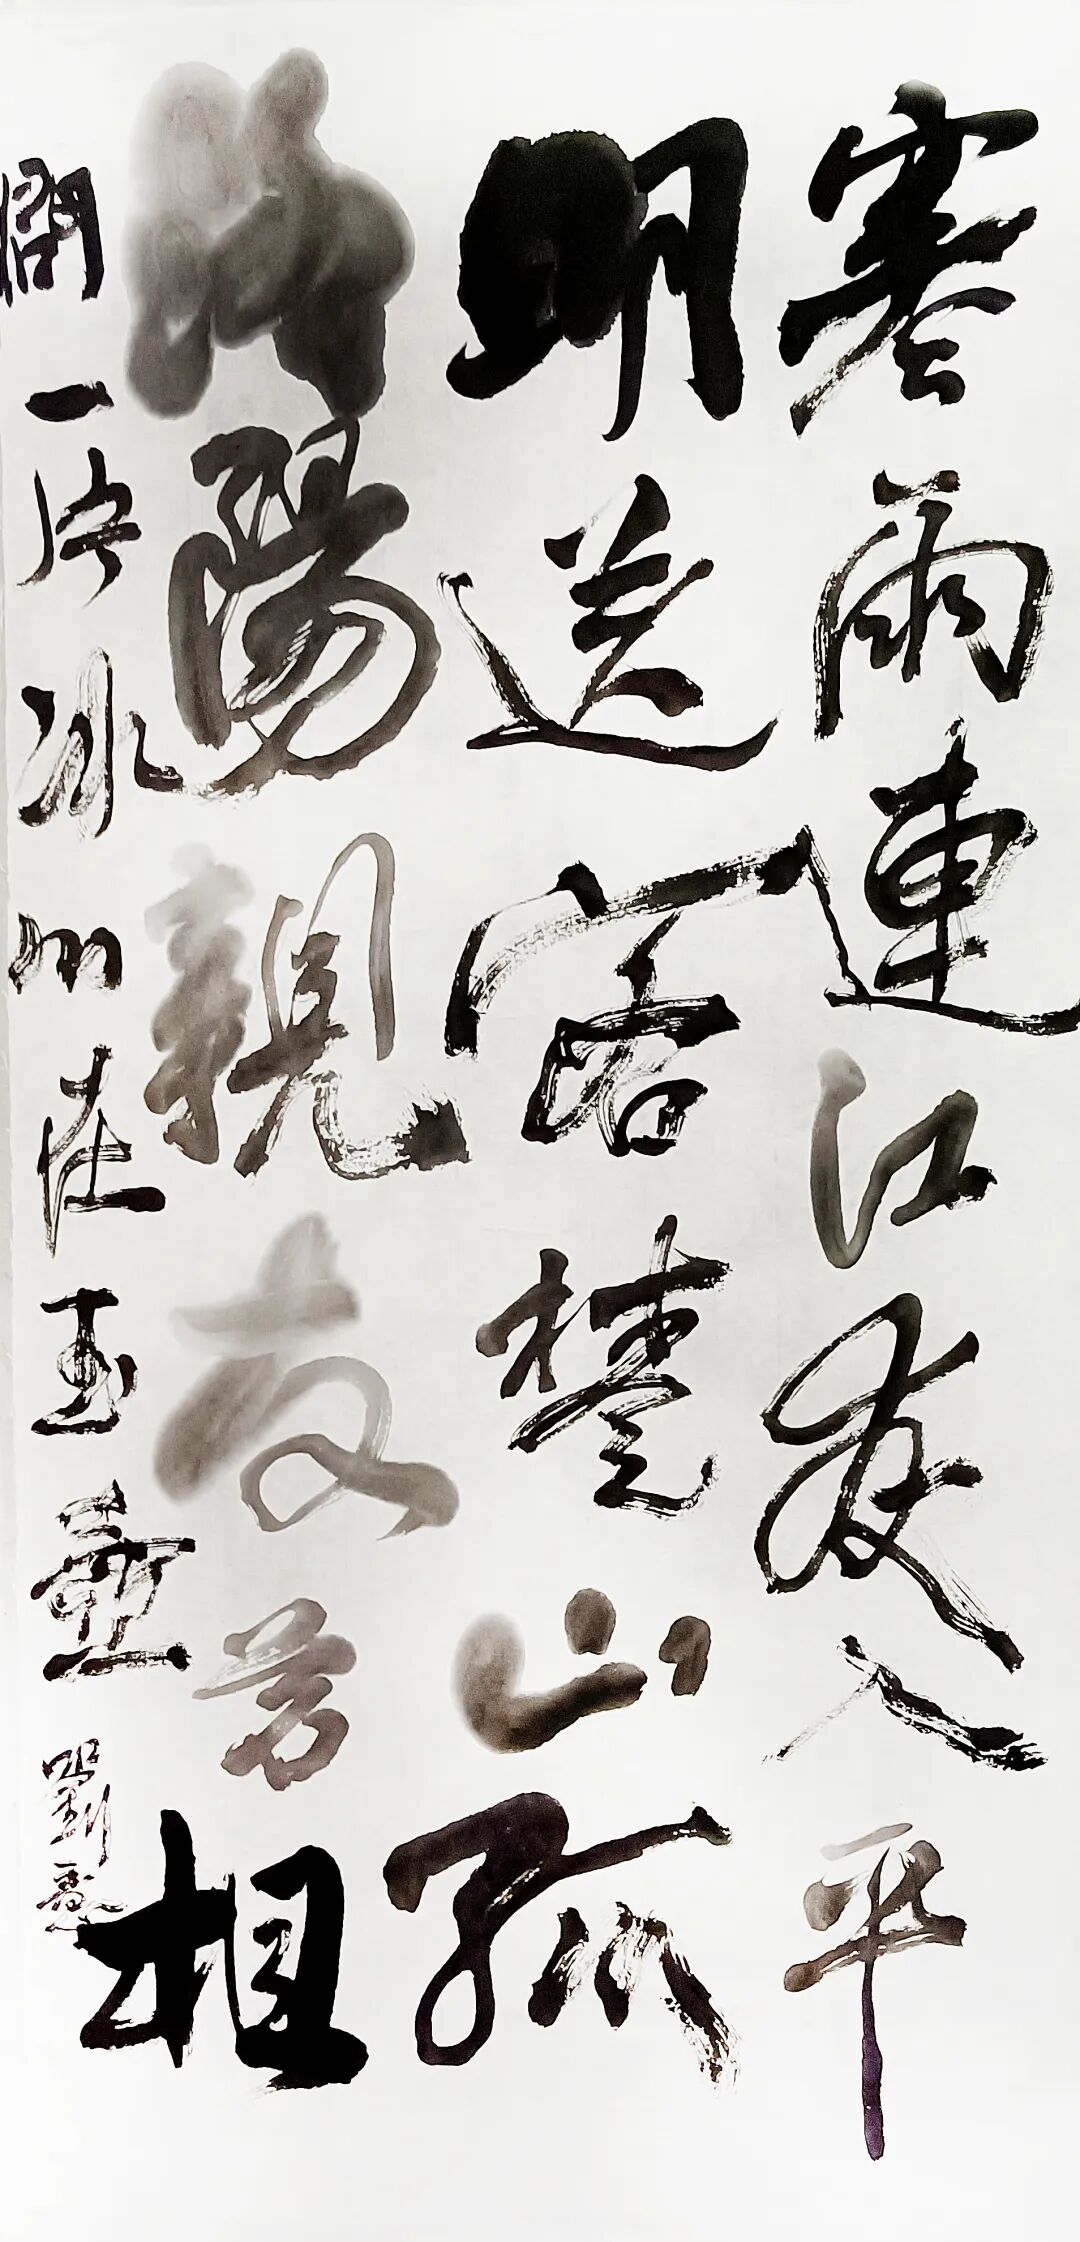 寒雨連江夜入平
明送客楚山孤
洛陽親友若相
問一片冰心在玉壺
劉